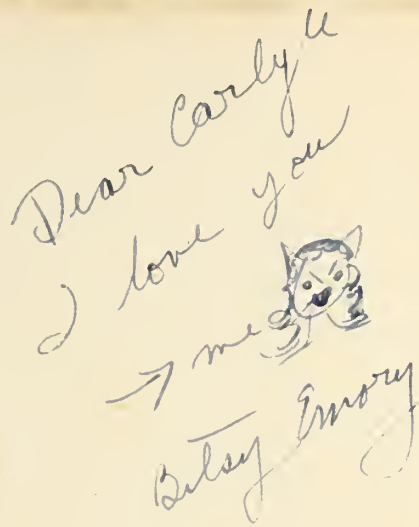 Dear Carlyle
I love you
→ me
Betsy Emory